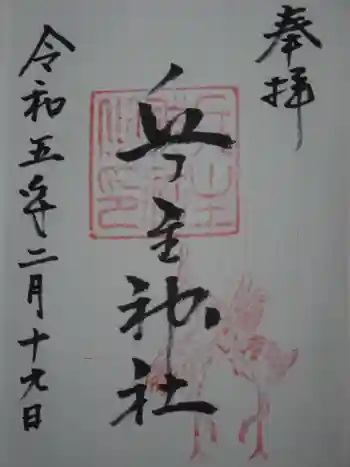 奉拝
兵主神社
令和五年二月十九日